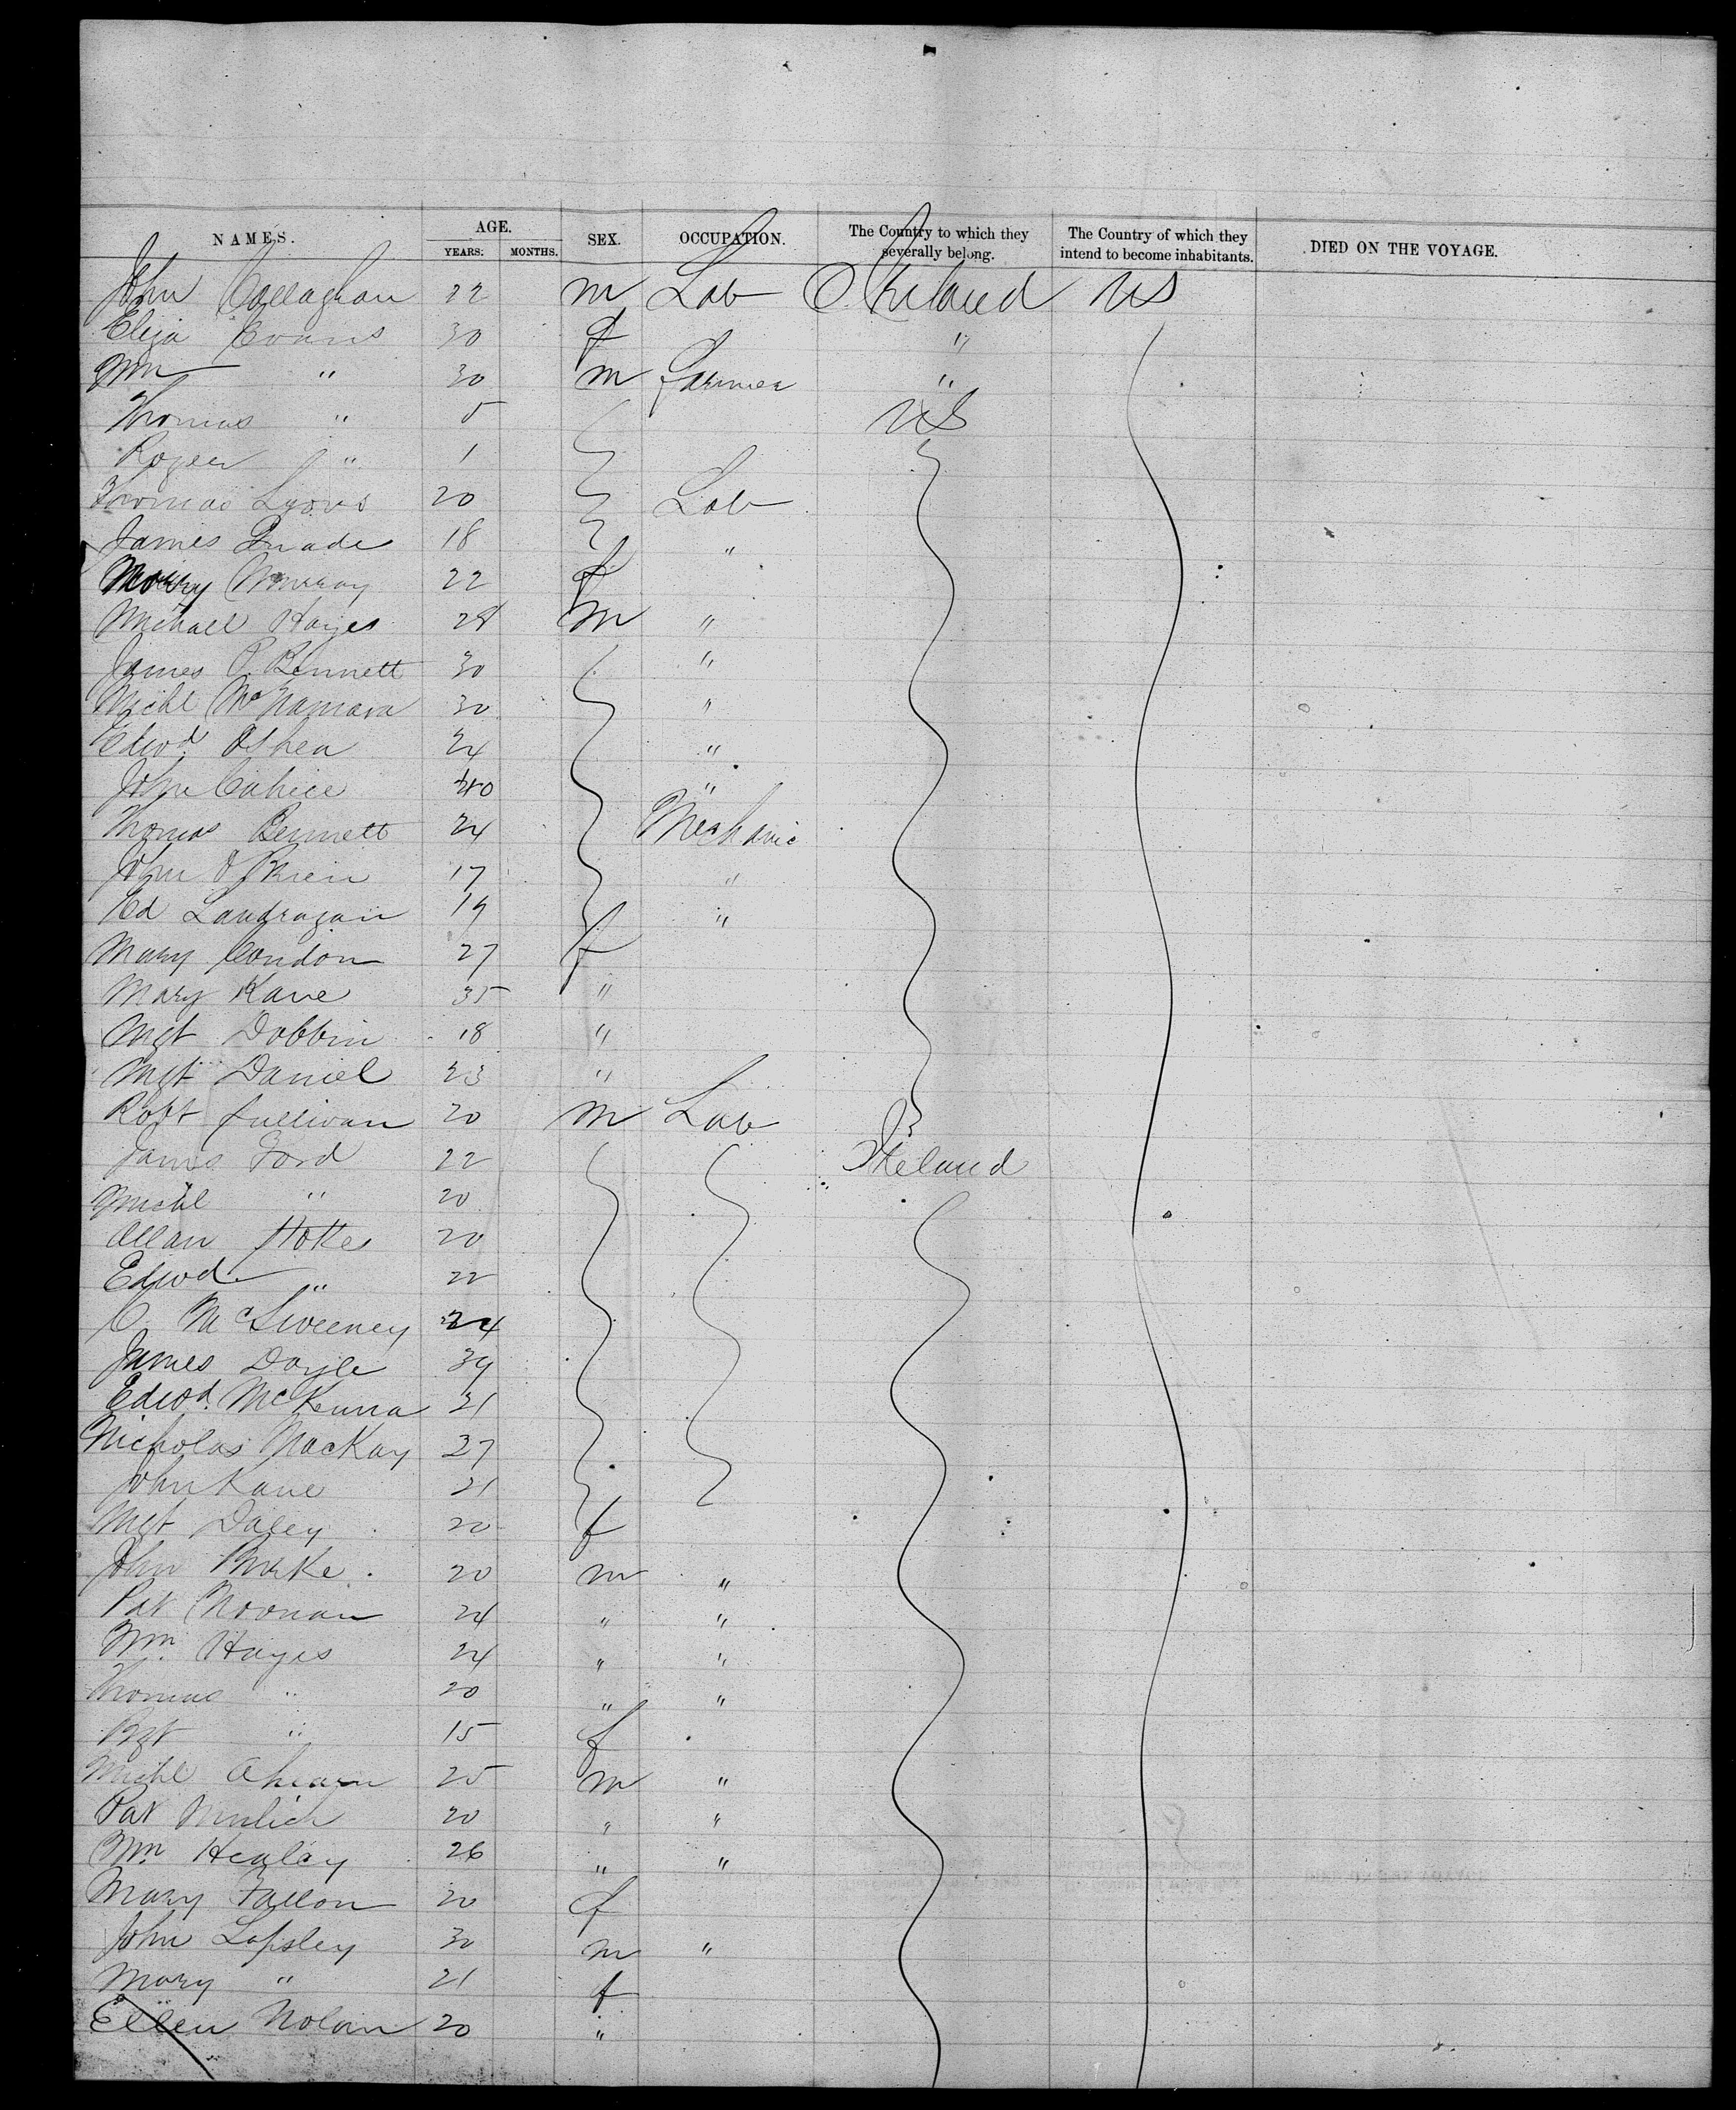 NAMES. AGE. SEX. OCCUPATION. The Country to which they severally belong. The Country of which they intend to become inhabitants. DIED ON THE VOYAGE.
YEARS. MONTHS.
John Callaghan 22 m Lab Ireland US
Eliza Evans 30 f "
Wm " 30 m farmer "
Thomas " 5 US
Roger " 1
Thomas Lyons 20 Lab
James 18 "
Murray 22 f
Michael Hayes 28 m "
James P. Bennett 30 "
Michl McNamara 30 "
Edwd OShea 24 "
John Cahill 40 "
Thomas Bennett 24 Mechanic
John OBrien 17 "
Ed Landragan 19 "
Mary Condon 27 f
Mary Kane 35 "
Mgt Dobbin 18 "
Mgt Daniel 23 "
Robt Sullivan 20 m Lab
James Ford 22 Ireland
Michl " 20
Allan Stokes 20
Edwd " 22
C. McSweeney 24
James Doyle 39
Edwd. McKenna 21
Nicholas MacKay 27
John Kane 21
Mgt Daley 20 f
John Burke. 20 m "
Pat Noonan 24 " "
Wm. Hayes 24 " "
Thomas " 20 " "
Bgt " 15 f
Michl Ahearn 25 m "
Pat 20 " "
Wm Healey 26 " "
Mary Fallon 20 f
John Lapsley 30 m "
Mary " 21 f
Ellen Nolan 20 "